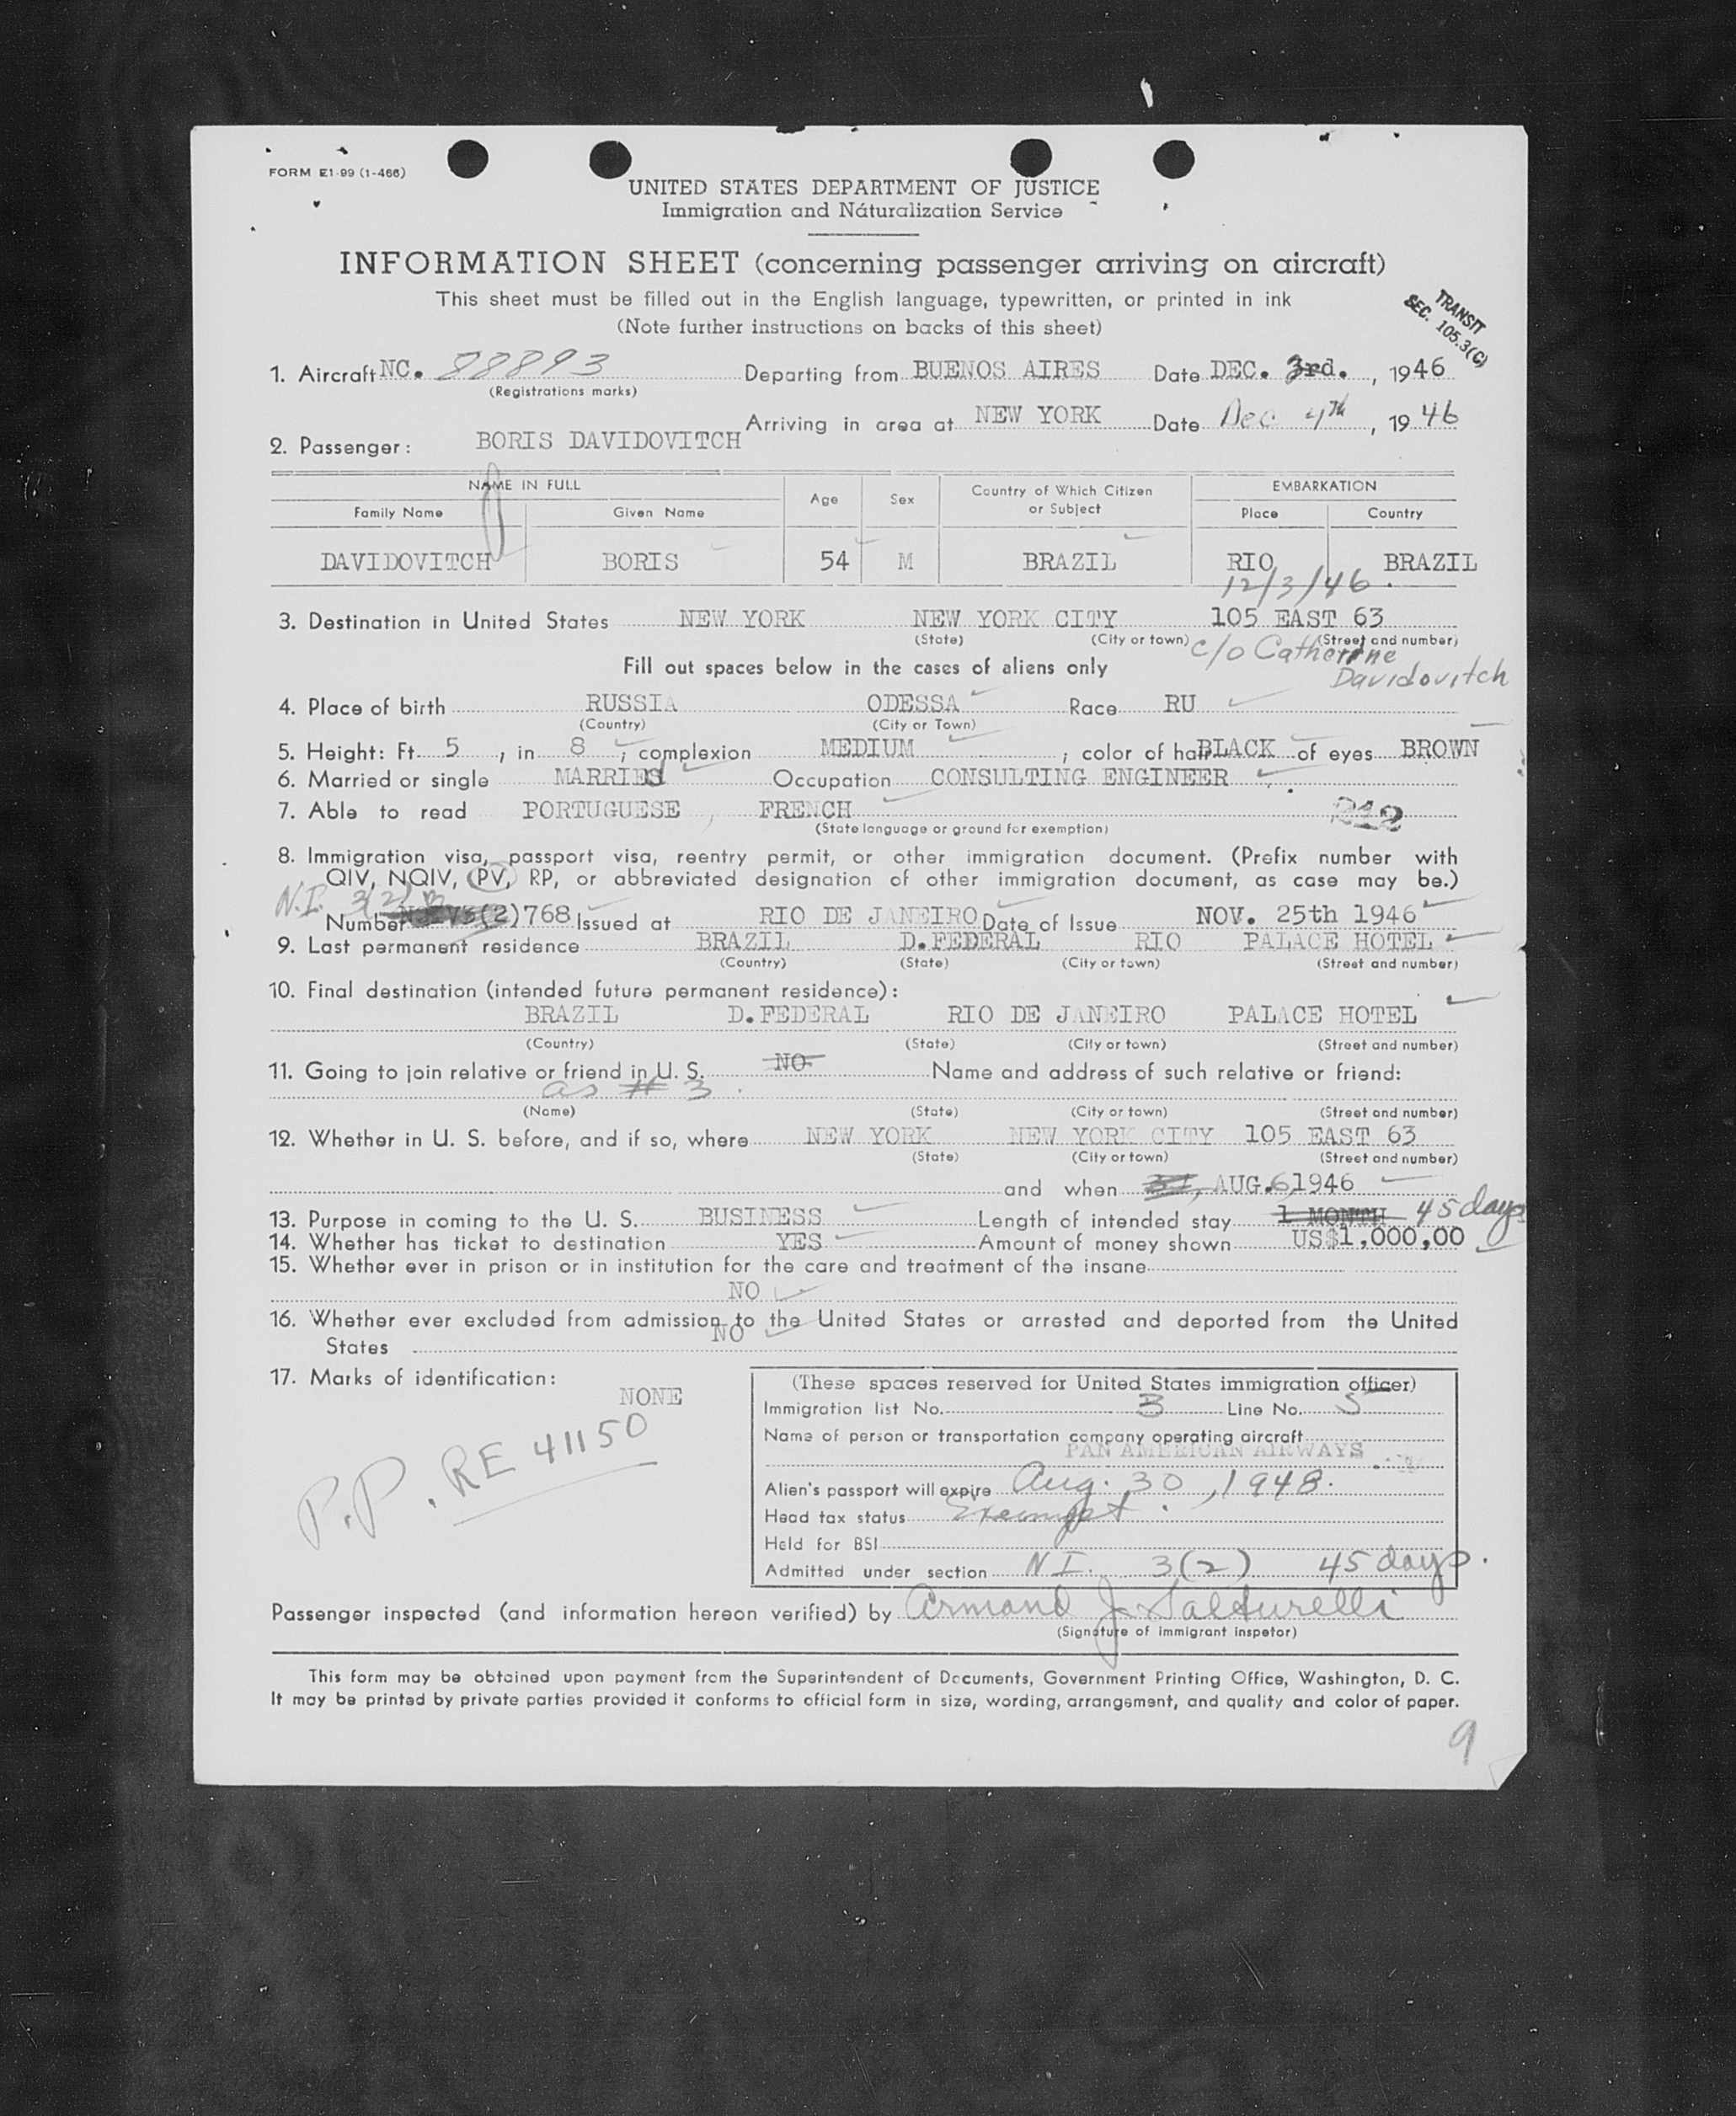 FORM E1-99 (1-466)
UNITED STATES DEPARTMENT OF JUSTICE
Immigration and Naturalization Service
INFORMATION SHEET (concerning passenger arriving on aircraft)
This sheet must be filled out in the English language, typewritten, or printed in ink
(Note further instructions on backs of this sheet)
TRANSIT
SEC. 105.3(C)
1. Aircraft NC. 88893 Departing from BUENOS AIRES Date DEC. 3rd. , 1946
(Registrations marks)
Arriving in area at NEW YORK Date Dec 4th , 1946
2. Passenger: BORIS DAVIDOVITCH
NAME IN FULL Age Sex Country of Which Citizen or Subject EMBARKATION
Family Name Given Name Place Country
DAVIDOVITCH BORIS 54 M BRAZIL RIO BRAZIL
12/3/46
3. Destination in United States NEW YORK NEW YORK CITY 105 EAST 63
(State) (City or town) (Street and number)
c/o Catherine
Davidovitch
Fill out spaces below in the cases of aliens only
4. Place of birth RUSSIA ODESSA Race RU
(Country) (City or Town)
5. Height: Ft. 5 , in 8 ; complexion MEDIUM ; color of hair BLACK of eyes BROWN
6. Married or single MARRIED Occupation CONSULTING ENGINEER
7. Able to read PORTUGUESE , FRENCH 212
(State language or ground for exemption)
8. Immigration visa, passport visa, reentry permit, or other immigration document. (Prefix number with
QIV, NQIV, PV, RP, or abbreviated designation of other immigration document, as case may be.)
N.I. 3(2)
Number (2)768 Issued at RIO DE JANEIRO Date of Issue NOV. 25th 1946
9. Last permanent residence BRAZIL D.FEDERAL RIO PALACE HOTEL
(Country) (State) (City or town) (Street and number)
10. Final destination (intended future permanent residence):
BRAZIL D.FEDERAL RIO DE JANEIRO PALACE HOTEL
(Country) (State) (City or town) (Street and number)
11. Going to join relative or friend in U. S. NO Name and address of such relative or friend:
as # 3
(Name) (State) (City or town) (Street and number)
12. Whether in U. S. before, and if so, where NEW YORK NEW YORK CITY 105 EAST 63
(State) (City or town) (Street and number)
and when AUG.6,1946
13. Purpose in coming to the U. S. BUSINESS Length of intended stay 1 MONTH 45 days
14. Whether has ticket to destination YES Amount of money shown US$1,000,00
15. Whether ever in prison or in institution for the care and treatment of the insane
NO
16. Whether ever excluded from admission to the United States or arrested and deported from the United
States NO
17. Marks of identification:
NONE
P.P. RE 41150
(These spaces reserved for United States immigration officer)
Immigration list No. 3 Line No. 5
Name of person or transportation company operating aircraft
PAN AMERICAN AIRWAYS
Alien's passport will expire Aug. 30, 1948.
Head tax status Exempt.
Held for BSI
Admitted under section N.I. 3(2) 45 days.
Passenger inspected (and information hereon verified) by Armand J. Salturelli
(Signature of immigrant inspetor)
This form may be obtained upon payment from the Superintendent of Documents, Government Printing Office, Washington, D. C.
It may be printed by private parties provided it conforms to official form in size, wording, arrangement, and quality and color of paper.
9